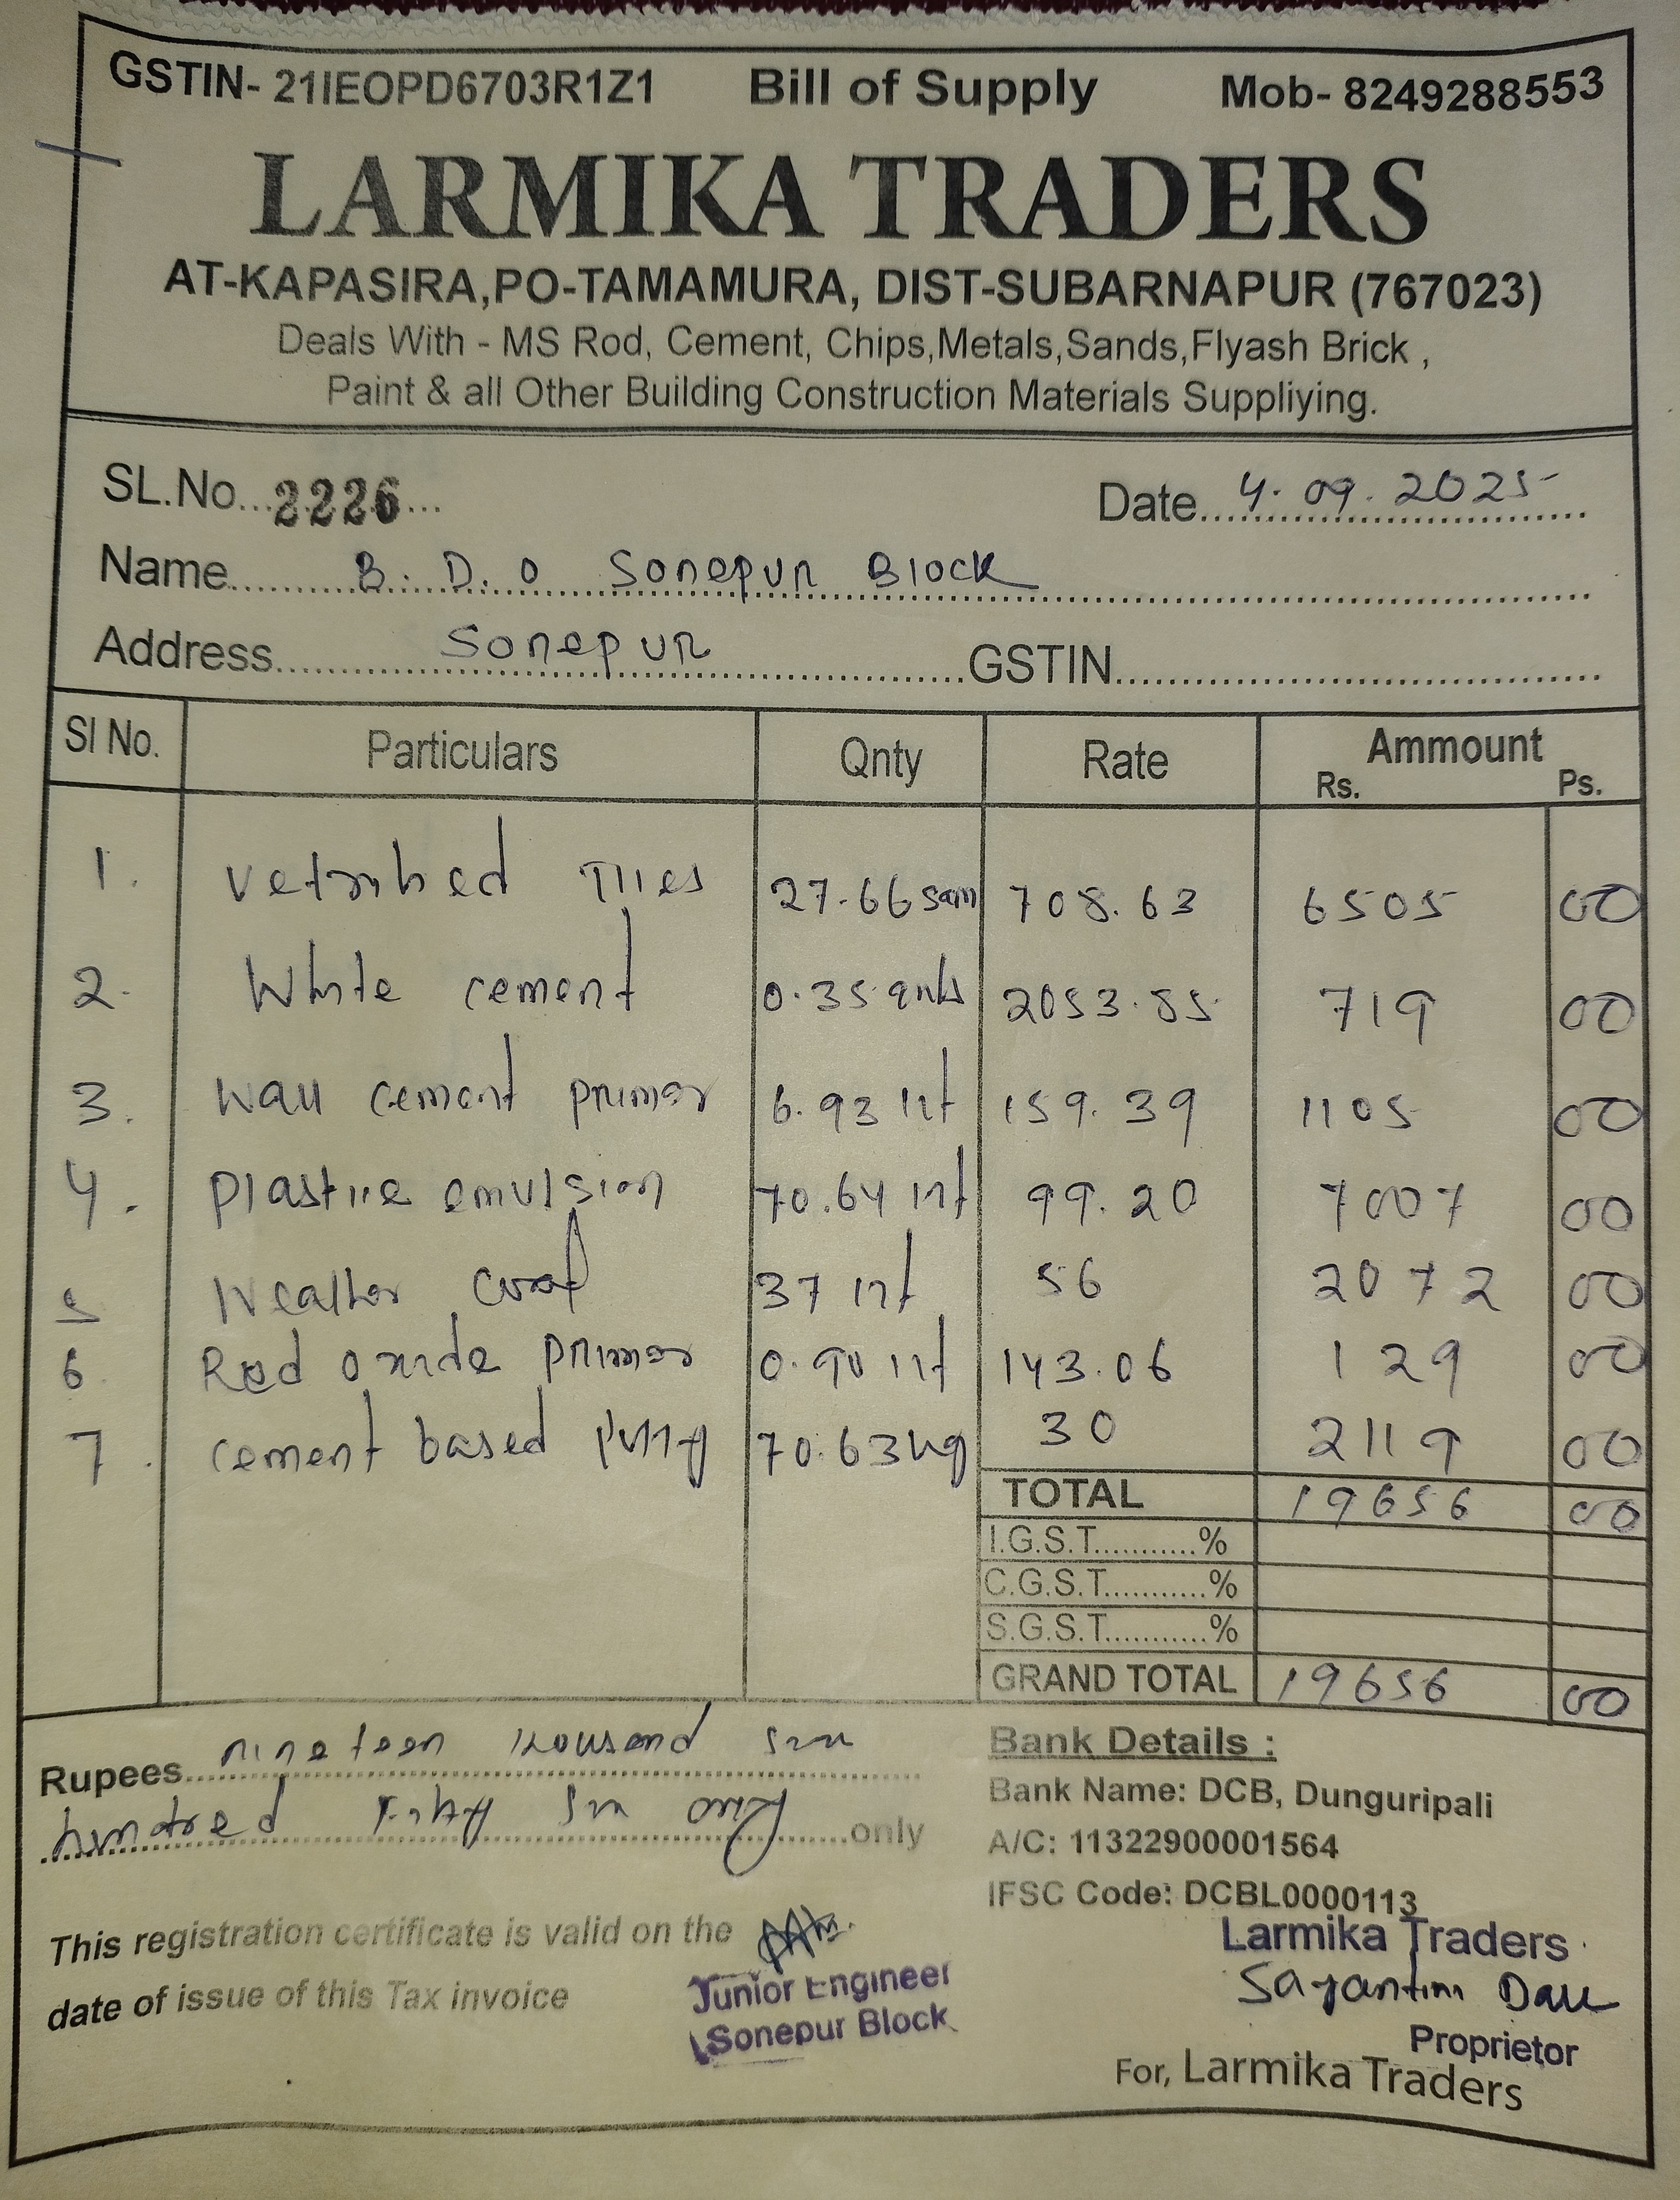 GSTIN- 21IEOPD6703R1Z1 Bill of Supply Mob- 8249288553
LARMIKA TRADERS
AT-KAPASIRA,PO-TAMAMURA, DIST-SUBARNAPUR (767023)
Deals With - MS Rod, Cement, Chips,Metals,Sands,Flyash Brick ,
Paint & all Other Building Construction Materials Suppliying.
SL.No...2226... Date...4.09.2025
Name...B.D.O Sonepur Block
Address...Sonepur...GSTIN...
Sl No. Particulars Qnty Rate Ammount
Rs. Ps.
1. Tiles 27.66 708.63 6505 00
2. White cement 0.35 2053.85 719 00
3. Wall cement primer 6.93 lit 159.39 1105 00
4. Plastic emulsion 70.64 lit 99.20 7007 00
5 Weather coat 37 lit 56 2072 00
6. Red oxide primer 0.90 lit 143.06 129 00
7. cement based putty 70.63 kg 30 2119 00
TOTAL 19656 00
I.G.S.T...........%
C.G.S.T...........%
S.G.S.T...........%
GRAND TOTAL 19656 00
Rupees...nineteen thousand six
hundred fifty six only...only
Bank Details :
Bank Name: DCB, Dunguripali
A/C: 11322900001564
IFSC Code: DCBL0000113
This registration certificate is valid on the
date of issue of this Tax invoice
Junior Engineer
Sonepur Block
Larmika Traders
Proprietor
For, Larmika Traders